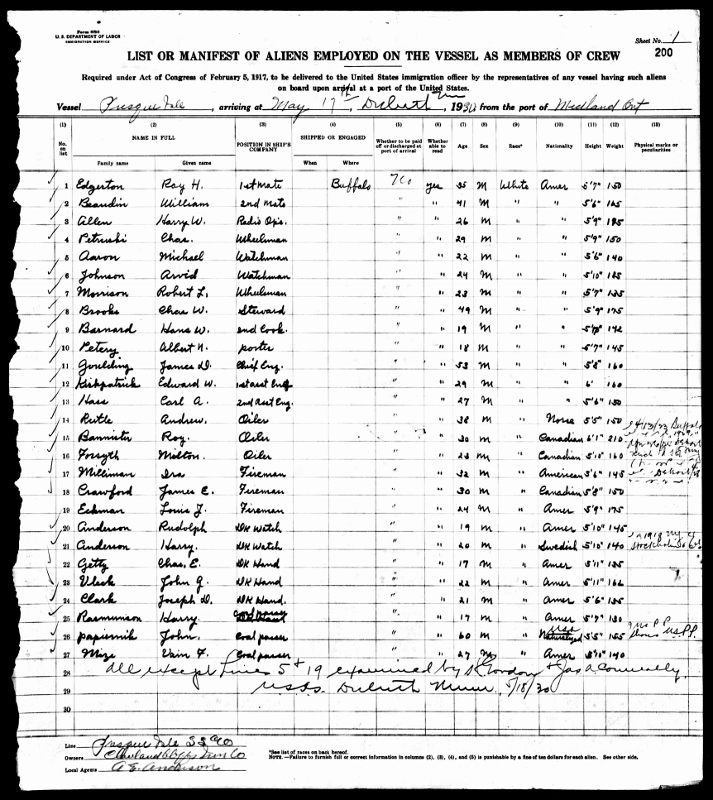 Form 680
U. S. DEPARTMENT OF LABOR
IMMIGRATION SERVICE
Sheet No. 1
200
LIST OR MANIFEST OF ALIENS EMPLOYED ON THE VESSEL AS MEMBERS OF CREW
Required under Act of Congress of February 5, 1917, to be delivered to the United States immigration officer by the representatives of any vessel having such aliens
on board upon arrival at a port of the United States.
Vessel Presque Isle, arriving at May 17th, Duluth Minn 1930 from the port of Midland Ont
(1) (2) (3) (4) (5) (6) (7) (8) (9) (10) (11) (12) (13)
No. on list NAME IN FULL Family name Given name POSITION IN SHIP'S COMPANY SHIPPED OR ENGAGED When Where Whether to be paid off or discharged at port of arrival Whether able to read Age Sex Race* Nationality Height Weight Physical marks or peculiarities
1 Edgerton Ray H. 1st Mate Buffalo No yes 35 M White Amer 5'7" 150
2 Beaudin William 2nd Mate " " 41 M " " 5'6" 165
3 Allen Harry W. Radio Opr. " " 26 M " " 5'9"
4 Petruski Chas. Wheelman " " 29 M " " 5'9" 150
5 Aaron Michael Watchman " " 22 M " " 5'6" 140
6 Johnson Arvid Watchman " " 24 M " " 5'10"
7 Morrison Robert L. Wheelsman " " 23 M " " 5'7" 135
8 Brooks Chas W. Steward " " 49 M " " 5'9" 175
9 Barnard Hans W. 2nd Cook. " " 19 M " " 142
10 Petery Albert N. porter " " 18 M " " 5'7" 145
11 Goulding James D. Chief Eng. " " 53 M " " 5'8" 160
12 Kirkpatrick Edward W. 1st asst Eng " " 29 M " " 6' 160
13 Hass Carl A. 2nd asst Eng. " " 27 M " " 5'6" 150
14 Rutle Andrew. Oiler " " 38 M " Norse 5'5" 150
15 Bannister Roy. Oiler " " 30 M " Canadian 6'1" 210
16 Forsyth Milton. Oiler " " 23 M " Canadian 5'10" 160
17 Milliman Ira Fireman " " 32 M " American 5'6" 145
18 Crawford James E. Fireman " " 30 M " Canadian 5'8" 150
19 Eckman Louis J. Fireman " " 24 M " Amer 5'9" 175
20 Anderson Rudolph DK Watch " " 19 M " Amer 5'10" 145
21 Anderson Harry. DK Watch " " 20 M " Swedish 5'10" 140 Stockholm
22 Getty Chas. E. DK Hand " " 17 M " Amer 5'11" 135
23 Vlack John J. DK Hand " " 22 M " Amer 5'11" 162
24 Clark Joseph D. DK Hand. " " 21 M " Amer 5'6" 135
25 Rasmusson Harry coal passer " " 17 M " Amer 5'7" 130
26 papiernik John. Coal passer " " 60 M " Naturalized USA 5'5" 155 Shows U.S.P.P.
27 Mize Vain F. Coal passer " " 27 M " Amer 5'11" 140
28 All except Lines 5 + 19 examined by Gordon + Jas A Conneally
29 USIS. Duluth Minn, 5/18/30
30
Line Presque Isle SS Co
Owners Cleveland Cliffs Iron Co
Local Agents A.E. Anderson
*See list of races on back hereof.
NOTE.—Failure to furnish full or correct information in columns (2), (3), (4), and (5) is punishable by a fine of ten dollars for each alien. See other side.